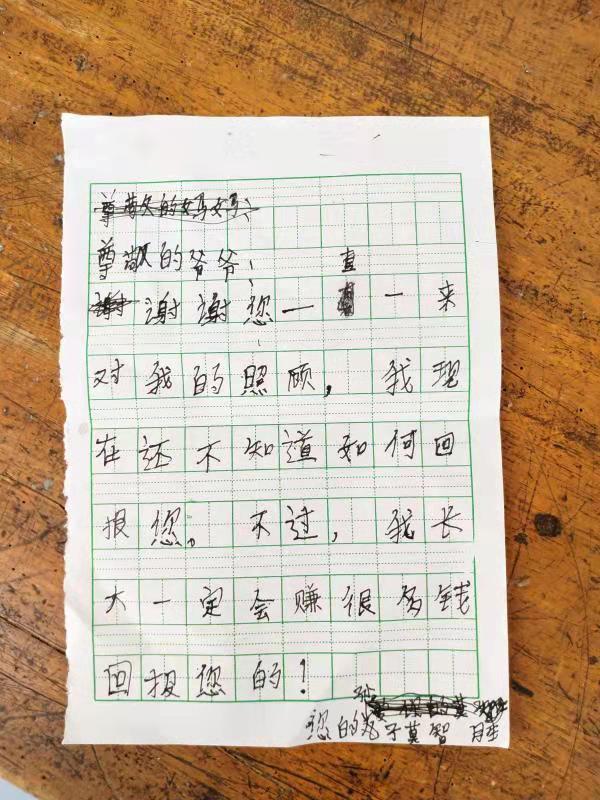 尊敬的妈妈：
尊敬的爷爷：
直
谢谢谢您一一来
对我的照顾，我现
在还不知道如何回
报您。不过，我长
大一定会赚很多钱
回报您的！
您的孙子莫智胜